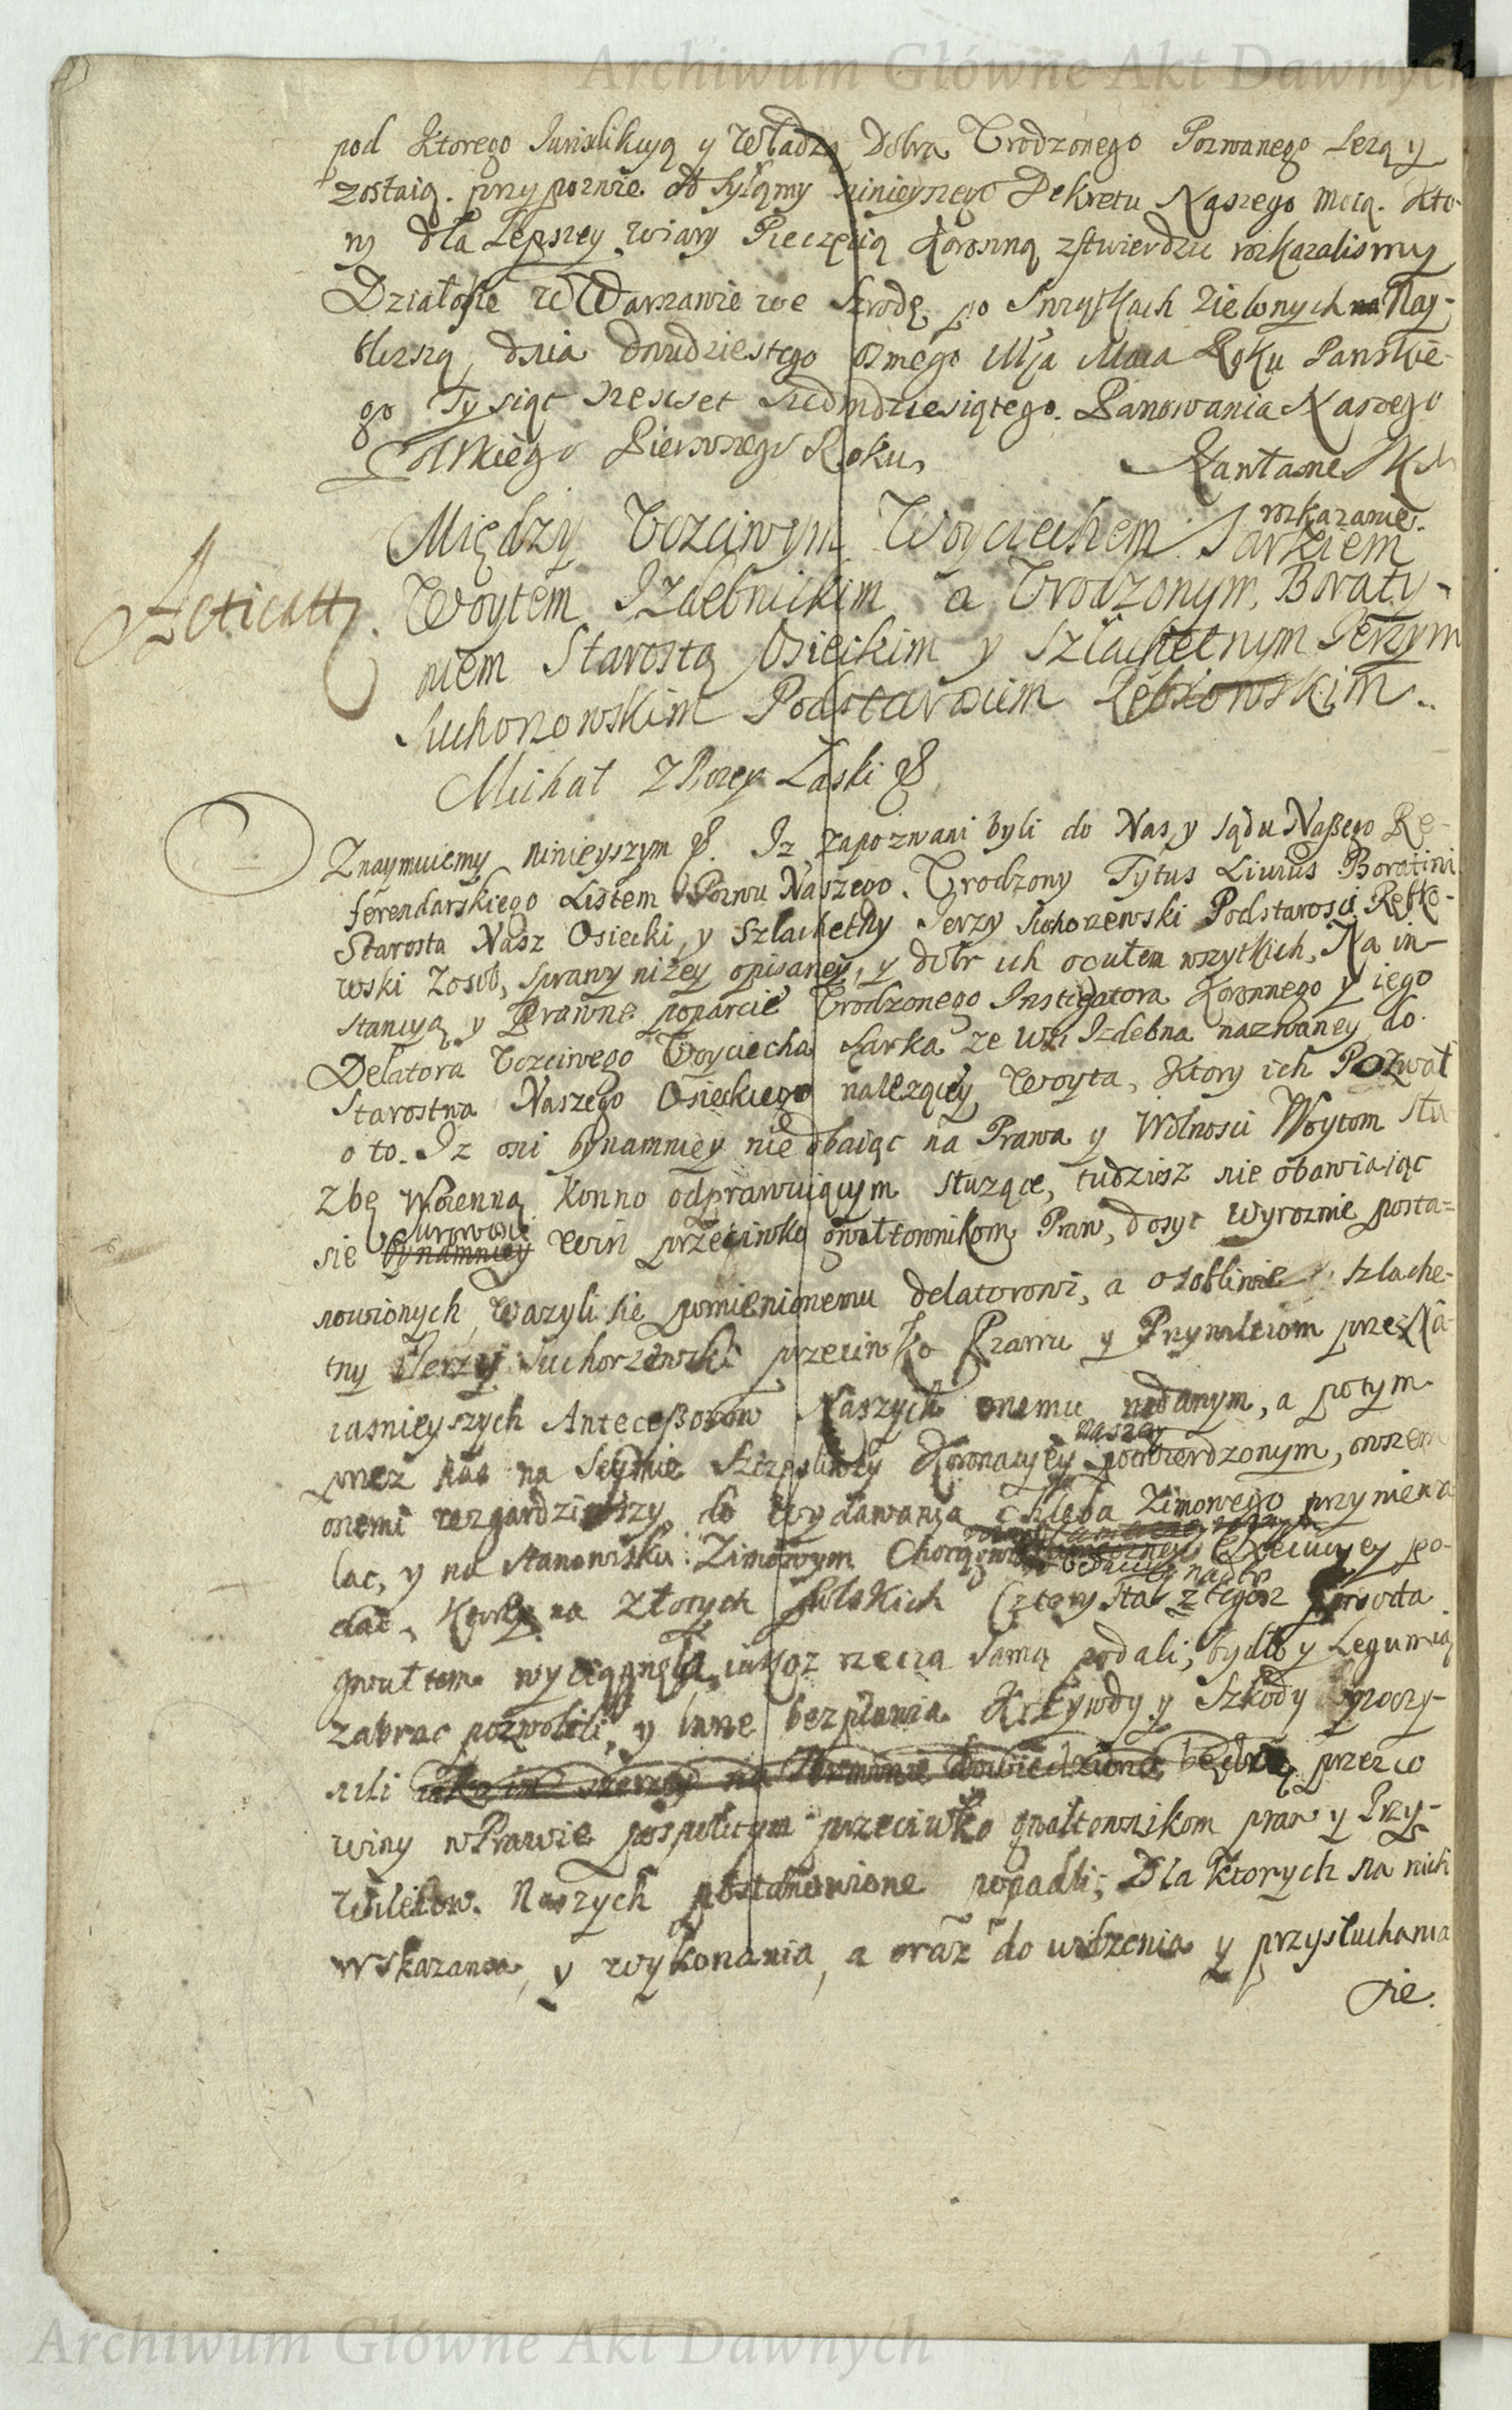 Archiwum Główne Akt Dawnych
pod ktorego Iurisdikcyą y Władzą Dobra Urodzonego Pozwanego Lezą y
zostaią. przypozwie odsyłamy ninieyszego Dekretu Naszego mocą. Kto-
ry dla Lepszey wiary Pieczęcią Koronną ztwierdzic rozkazalismy
Działosie w Warszawie we Szrodę po Swiątkach Zielonych na Nay-
blizszą, dnia dwudziestego osmego Mca Maia Roku Panskie-
go Tysiąc szescset siedmdziesiątego. Panowania Naszego
Polskiego Pierwszego Roku,
rozkazanie.
Między Uczciwym Woyciechem Sarkiem
Acticatt.
Woytem Izdebnickim a Urodzonym Boraty-
niem Starostą Osieckim y Szlachetnym Jerzym
Suchorzowskim Podstaroscim Rębkowskim.
Michał z Bozey Łaski &
Znaymuiemy ninieyszym &. Iz zapozwani byli do Nas y sądu Naszego Re-
ferendarskiego Listem Pozwu Naszego. Urodzony Tytus Liuius Boratini
Starosta Nasz Osiecki, y Szlachetny Jerzy Suchorzewski Podstarosci Rębko-
wski z osob, sprawy nizey opisaney, y dobr ich ogułem wszytkich, Na in-
stancyą y Prawne poparcie Urodzonego Instigatora Koronnego y iego
Delatora Uczciwego Woyciecha Sarka ze wsi Izdebna nazwaney do
Starostwa Naszego Osieckiego nalezącey Woyta, Ktory ich Pozwał
o to. Iz oni bynamniey nie dbaiąc na Prawa y Wolnosci Woytom słu
zbę Woienną konno odprawuiącym słuzące, tudziesz nie obawiaiąc
surowosci
sie bynamniey Win przeciwko gwałtownikom Praw, dosyc wyroznie posta-
nowionych, wazyli sie pomienionemu delatorowi, a osobliwie szlache-
tny Jerzy Suchorzewski przeciwko Prawu y Przywileiom przez Na-
iasnieyszych Antecessorow Naszych onemu nadanym, a potym
naszey
przez nas na Seymie Szczęsliwey Koronacyey potwierdzonym, owszem
onemi wzgardziwszy do wydawania chleba Zimowego przyniewa
lac, y na stanowisku Zimowym Chorągwi Execucyey po-
dac, Ktora na złotych polskich Cztery sta z tegosz
gwałtem wyciągnęła, iakosz rzeczą samą podali, bydło y Legumią
zabrac pozwolili, y inne bezprawia Krzywdy y Szkody poczy-
nili iako im szerzey na Terminie dowiedziono będzie, przez co
winy w Prawie pospolitym przeciwko gwałtownikom praw y Przy-
wileiow Naszych postanowione popadli, Dla ktorych na nich
wskazania, y wykonania, a oraz do widzenia y przysłuchania
sie.
Archiwum Główne Akt Dawnych